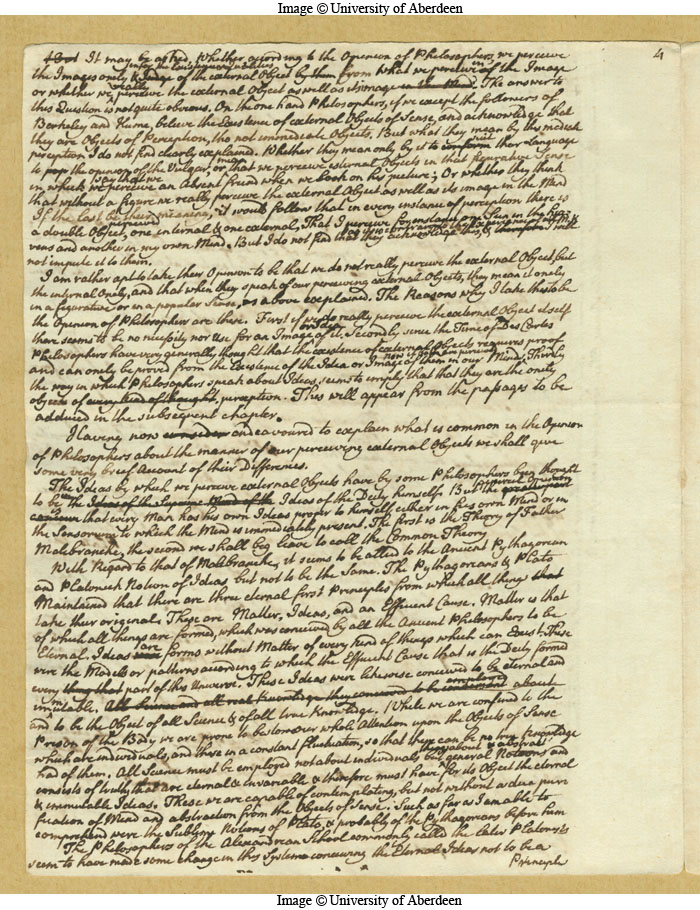 Image © University of Aberdeen
4
It may be asked, Whether according to the Opinion of Philosophers, we perceive
the Images only & judge of the external Object by them from what we perceive in the Image
or whether we really perceive the external Object as well as its image in the Mind. The answer to
this Question is not quite obvious. On the one hand Philosophers, if we except the followers of
Berkeley and Hume, believe the Existence of external Objects of Sense, and acknowledge that
they are Objects of Perception, tho not immediate Objects. But what they mean by this mediate
perception I do not find clearly explained. Whether they mean only by it to conform their Language
to the opinion of the Vulgar, or mean that we perceive external Objects in that figurative Sense
in which we say that we perceive an absent friend when we look on his picture; Or whether they think
that without a figure we really perceive the external Object as well as its image in the Mind
If the last be their meaning, it would follow that in every instance of perception there is
a double Object perceived, one internal & one external, That I perceive for instance one Sun in the Hea
vens and another in my own Mind. But I do not find that they acknowledge this, & therefore I will
not impute it to them.
I am rather apt to take their Opinion to be that we do not really perceive the external Object but
the internal only, and that when they speak of our perceiving external Objects, they mean it only
in a figurative or in a popular Sense, as above explained. The Reasons why I take this to be
the Opinion of Philosophers are these. First if we do really perceive the external Object itself
there seems to be no necessity nor Use for an Image or Idea of it, Secondly, since the Time of Des Cartes
Philosophers have very generally thought that the existence of external Objects requires proof
and can only be proved from the Existence of the Idea or Image of them in our Mind. Thirdly
the way in which Philosophers speak about Ideas, seems to imply that that they are the only
objects of every kind of thought. perception. This will appear from the passages to be
adduced in the subsequent chapter.
Having now consider endeavoured to explain what is common in the Opinion
of Philosophers about the manner of our perceiving external Objects we shall give
some very brief Account of their Differences.
The Ideas by which we perceive external Objects have by some Philosophers been thought
to be the Ideas of the Supreme Mind of the Ideas of the Deity himself. But the general Opinion
that every Man has his own Ideas proper to himself either in his own Mind or in
the Sensory to which the Mind is immediately present. The first is the Theory of Father
Malebranche, the second we shall beg leave to call the Common Theory
With Regard to that of Malebranche, it seems to be allied to the Ancient Pythagorean
and Platonick Notion of Ideas but not to be the Same. The Pythagoreans & Plato
Maintained that there are three eternal first Principles from which all things that
take their original. These are Matter, Ideas, and an Efficient Cause. Matter is that
of which all things are formed, which was conceived by all the Ancient Philosophers to be
Eternal. Ideas are forms without Matter of every kind of things which can Exist. These
were the Models or patterns according to which the Efficient Cause that is the Deity formed
every thing that part of this Universe. These Ideas were likewise conceived to be eternal and
immutable, All Science and all real Knowledge they conceived to be employed about
and to be the Object of all Science & of all true Knowledge. While we are confined to the
Prison of the Body we are prone to bestow our whole Attention upon the Objects of Sense
which are individuals, and these in a constant fluctuation, so that there can be no true Knowledge
had of them. All Science must be employed not about individuals but about general & abstract Notions and
consists of truths that are eternal & invariable & therefore must have for its Object the eternal
& immutable Ideas. These we are capable of contemplating, but not without a due puri
fication of Mind and abstraction from the Objects of Sense. Such as far as I am able to
comprehend were the Sublime Notions of Plato, & probably of the Pythagoreans before him
The Philosophers of the Alexandrian School commonly called the later Platonists
seem to have made some change in this Systeme conceiving the Eternal Ideas not to be a
Principle
Image © University of Aberdeen